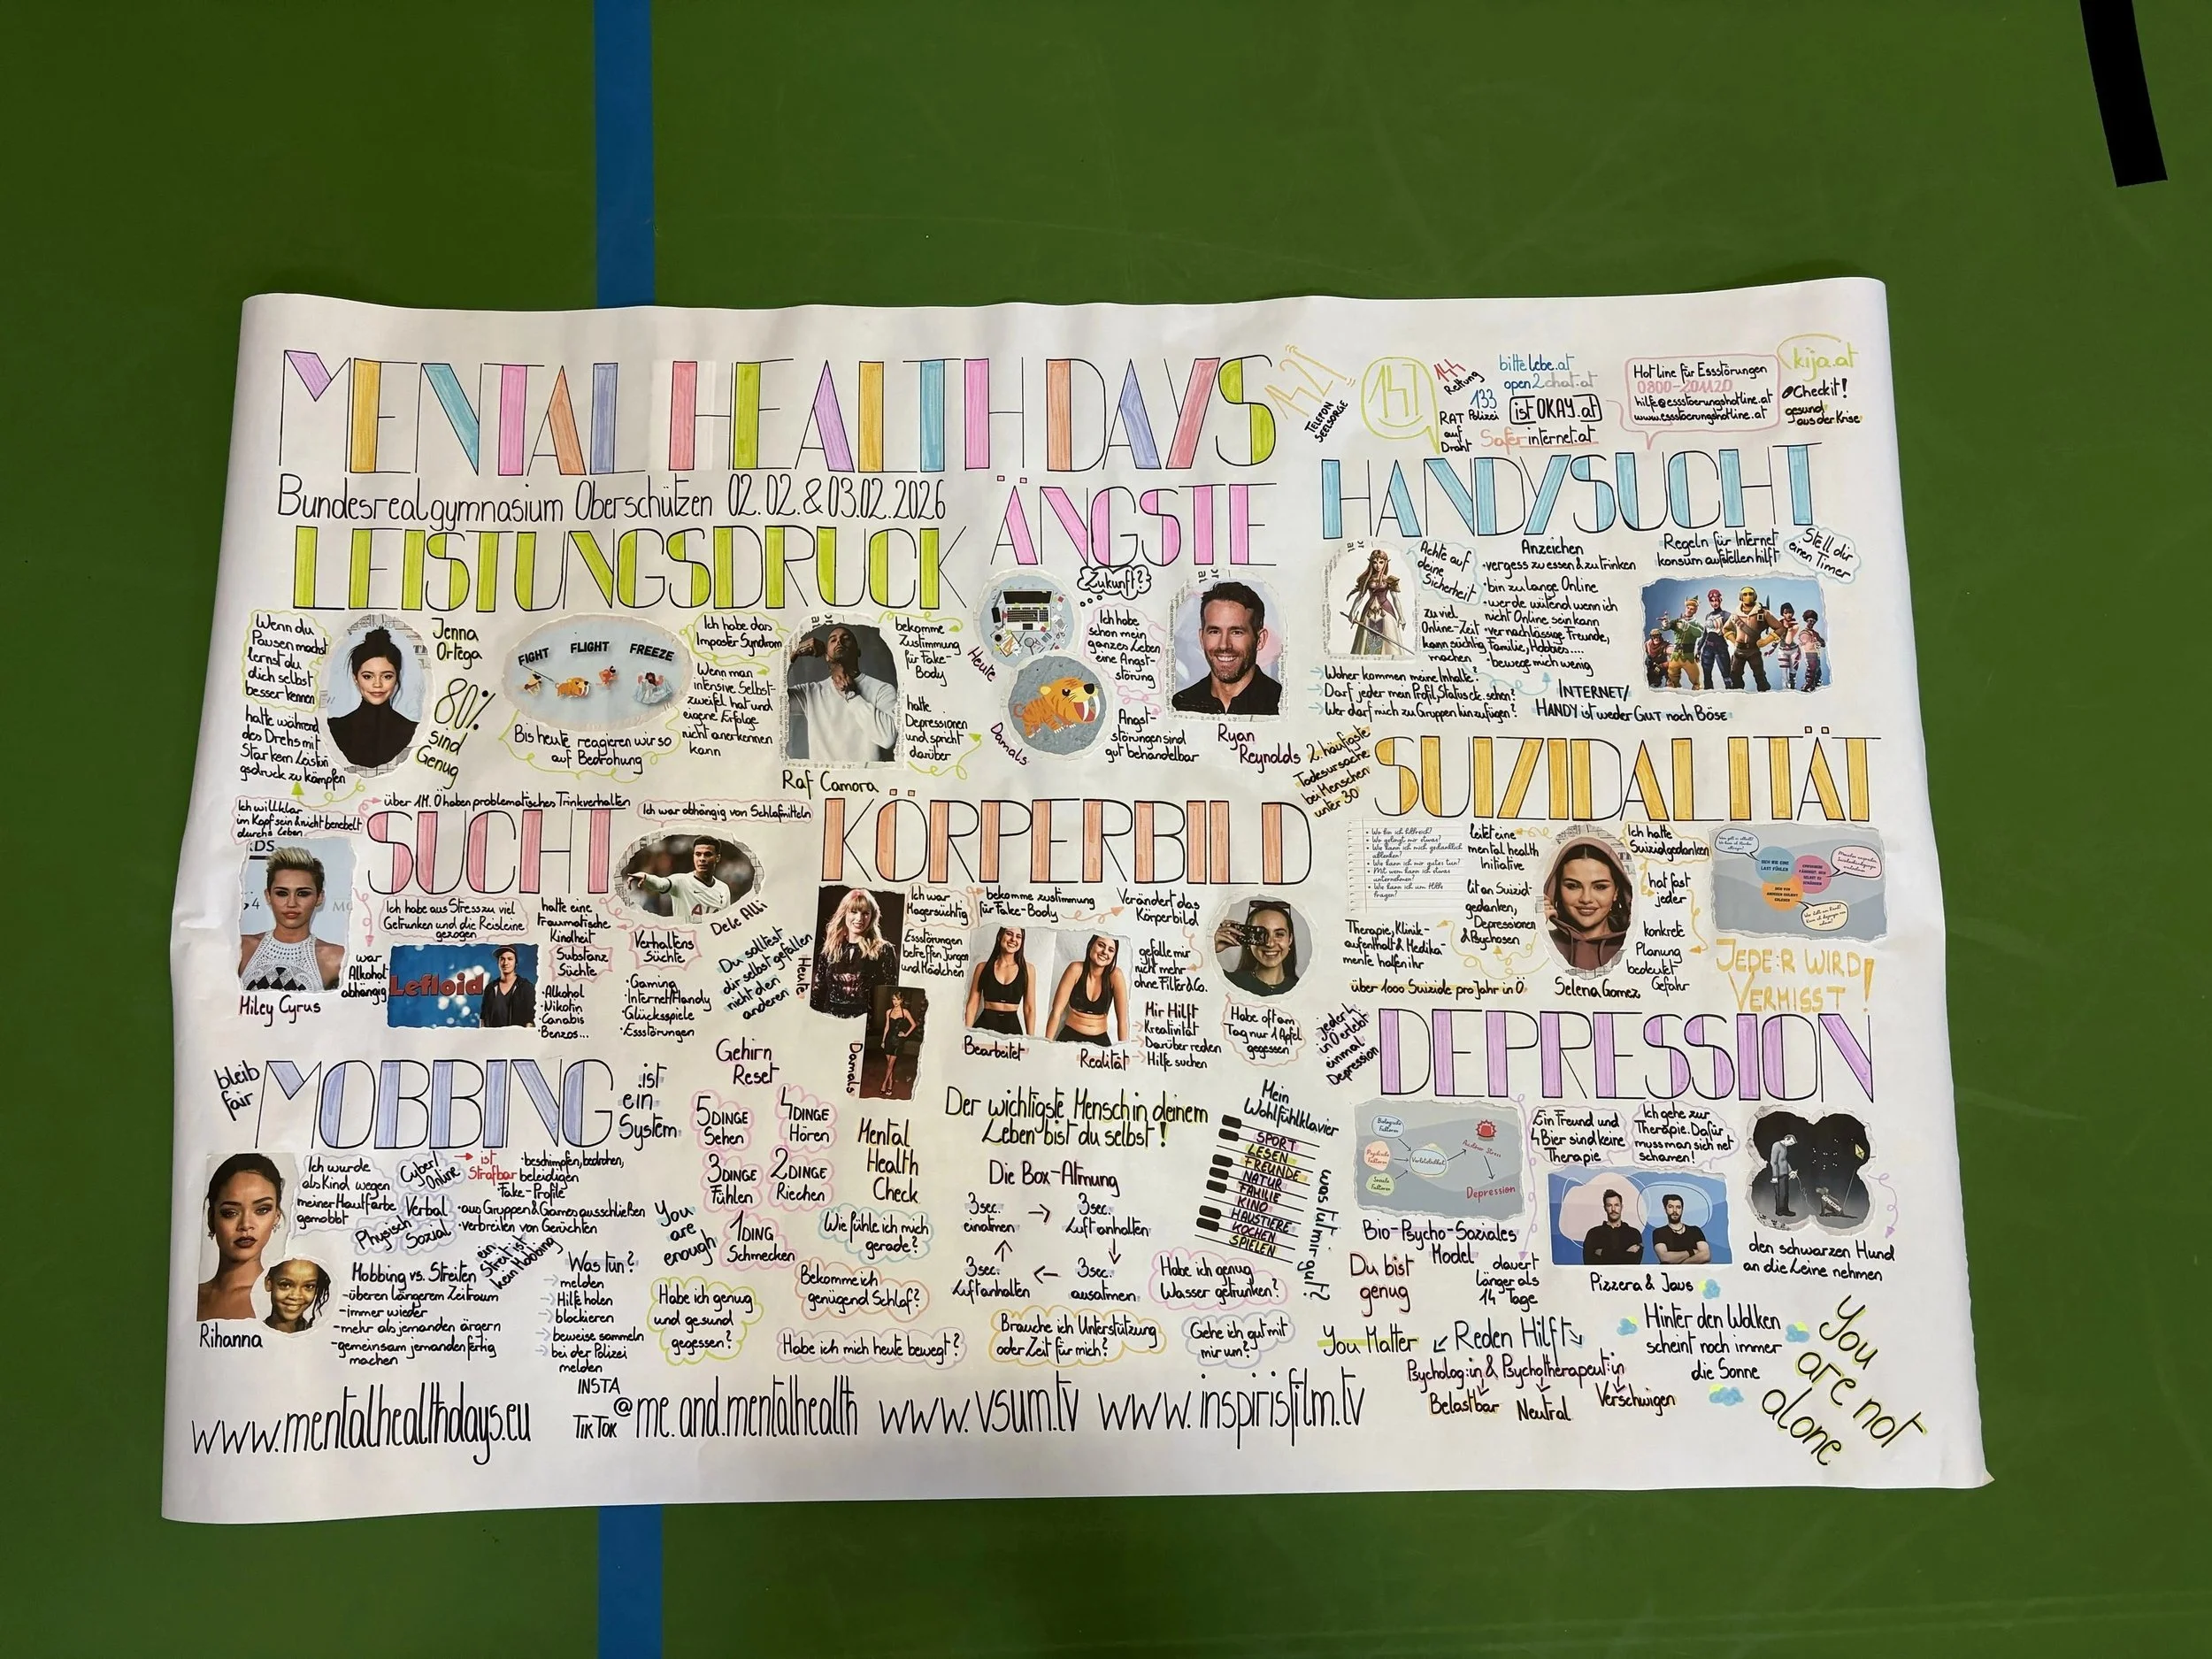 MENTAL HEALTH DAYS
Bundesrealgymnasium Oberschützen 02.02.&03.02.2026
142!
TELEFON
SEELSORGE
147
144
Rettung
133
Polizei
RAT
auf
Draht
bittelebe.at
open2chat.at
istOKAY.at
Saferinternet.at
Hotline für Essstörungen
0800-201120
hilfe@essstoerungshotline.at
www.essstoerungshotline.at
kija.at
Checkit!
gesund
aus der Krise
LEISTUNGSDRUCK
Wenn du
Pausen machst
lernst du
dich selbst
besser kennen
Jenna
Ortega
80%
sind
Genug
hatte während
des Drehs mit
Starkem Leistungs
gedruck zu kämpfen
FIGHT FLIGHT FREEZE
Bis heute reagieren wir so
auf Bedrohung
Ich habe das
Imposter Syndrom
Wenn man
intensive Selbst-
zweifel hat und
eigene Erfolge
nicht anerkennen
kann
Raf Camora
bekomme
Zustimmung
für Fake-
Body
hatte
Depressionen
und spricht
darüber
ÄNGSTE
Zukunft?
Heute
Damals
Ich habe
schon mein
ganzes Leben
eine Angst-
störung
Angst-
störungen sind
gut behandelbar
Ryan
Reynolds
HANDYSUCHT
Achte auf
deine
Sicherheit
zu viel
Online-Zeit
kann süchtig
machen
Anzeichen
·vergess zu essen & zu trinken
·bin zu lange Online
·werde wütend wenn ich
nicht Online sein kann
·vernachlässige Freunde,
Familie, Hobbies....
·bewege mich wenig
Regeln für Internet
konsum aufstellen hilft
Stell dir
einen Timer
→Woher kommen meine Inhalte?
→Darf jeder mein Profil, Status etc. sehen?
→Wer darf mich zu Gruppen hinzufügen?
INTERNET/
HANDY ist weder GUT noch BÖSE
SUCHT
Ich will klar
im Kopf sein & nicht benebelt
durchs Leben
über 1M. Ö haben problematisches Trinkverhalten
Ich war abhängig von Schlafmitteln
Miley Cyrus
war
Alkohol
abhängig
Ich habe aus Stress zu viel
Getrunken und die Reisleine
gezogen
Lefloid
hatte eine
traumatische
Kindheit
Substanz
Süchte
·Alkohol
·Nikotin
·Canabis
·Benzos...
Dele Alli
Verhaltens
Süchte
·Gaming
·Internet/Handy
·Glücksspiele
·Essstörungen
Du solltest
dir selbst gefallen
nicht den
anderen
KÖRPERBILD
Heute
Damals
Ich war
Magersüchtig
Essstörungen
betreffen Jungen
und Mädchen
bekomme zustimmung
für Fake-Body
Verändert das
Körperbild
Bearbeitet
Realität
gefalle mir
nicht mehr
ohne Filter & Co.
Mir Hilft
→Kreativität
→Darüber reden
→Hilfe suchen
Habe oft am
Tag nur 1 Apfel
gegessen
SUIZIDALITÄT
2. häufigste
Todesursache
bei Menschen
unter 30
leitet eine
mental health
Initiative
litt an Suizid-
gedanken,
Depressionen
& Psychosen
Therapie, Klinik-
aufenthalt & Medika-
mente halfen ihr
über 1000 Suizide pro Jahr in Ö
Selena Gomez
Ich hatte
Suizidgedanken
hat fast
jeder
konkrete
Planung
bedeutet
Gefahr
JEDE:R WIRD
VERMISST!
MOBBING
bleib
fair
...ist
ein
System
Rihanna
Ich wurde
als Kind wegen
meiner Hautfarbe
gemobbt
Cyber/
Online
Verbal
Physisch
Sozial
→ist
Strafbar
·beschimpfen, bedrohen,
beleidigen
·Fake-Profile
·aus Gruppen & Games ausschließen
·verbreiten von Gerüchten
ein
Streit ist
kein Mobbing
Mobbing vs. Streiten
-über en längerem Zeitraum
-immer wieder
-mehr als jemanden ärgern
-gemeinsam jemanden fertig
machen
Was tun?
→melden
→Hilfe holen
→blockieren
→beweise sammeln
→bei der Polizei
melden
Gehirn
Reset
5DINGE
Sehen
4DINGE
Hören
3DINGE
Fühlen
2DINGE
Riechen
1DING
Schmecken
You
are
enough
Mental
Health
Check
Wie fühle ich mich
gerade?
Bekomme ich
genügend Schlaf?
Habe ich genug
und gesund
gegessen?
Habe ich mich heute bewegt?
Brauche ich Unterstützung
oder Zeit für mich?
Habe ich genug
Wasser getrunken?
Gehe ich gut mit
mir um?
Der wichtigste Mensch in deinem
Leben bist du selbst!
Die Box-Atmung
3sec.
einatmen
3sec.
Luft anhalten
3sec.
ausatmen
3sec.
Luftanhalten
Mein
Wohlfühlklavier
SPORT
LESEN
FREUNDE
NATUR
FAMILIE
KINO
HAUSTIERE
KOCHEN
SPIELEN
was tut mir gut?
DEPRESSION
jede:r 4.
in Ö erlebt
einmal
Depression
Depression
Bio-Psycho-Soziales
Model
dauert
länger als
14 Tage
Du bist
genug
Ein Freund und
4 Bier sind keine
Therapie
Ich gehe zur
Therapie. Dafür
muss man sich net
schämen!
Pizzera & Jaus
den schwarzen Hund
an die Leine nehmen
You Matter
Reden Hilft
Psycholog:in & Psychotherapeut:in
Belastbar
Neutral
Verschwigen
Hinter den Wolken
scheint noch immer
die Sonne
You
are not
alone
www.mentalhealthdays.eu
INSTA
TIKTOK
@me.and.mentalhealth
www.vsum.tv
www.inspirisfilm.tv